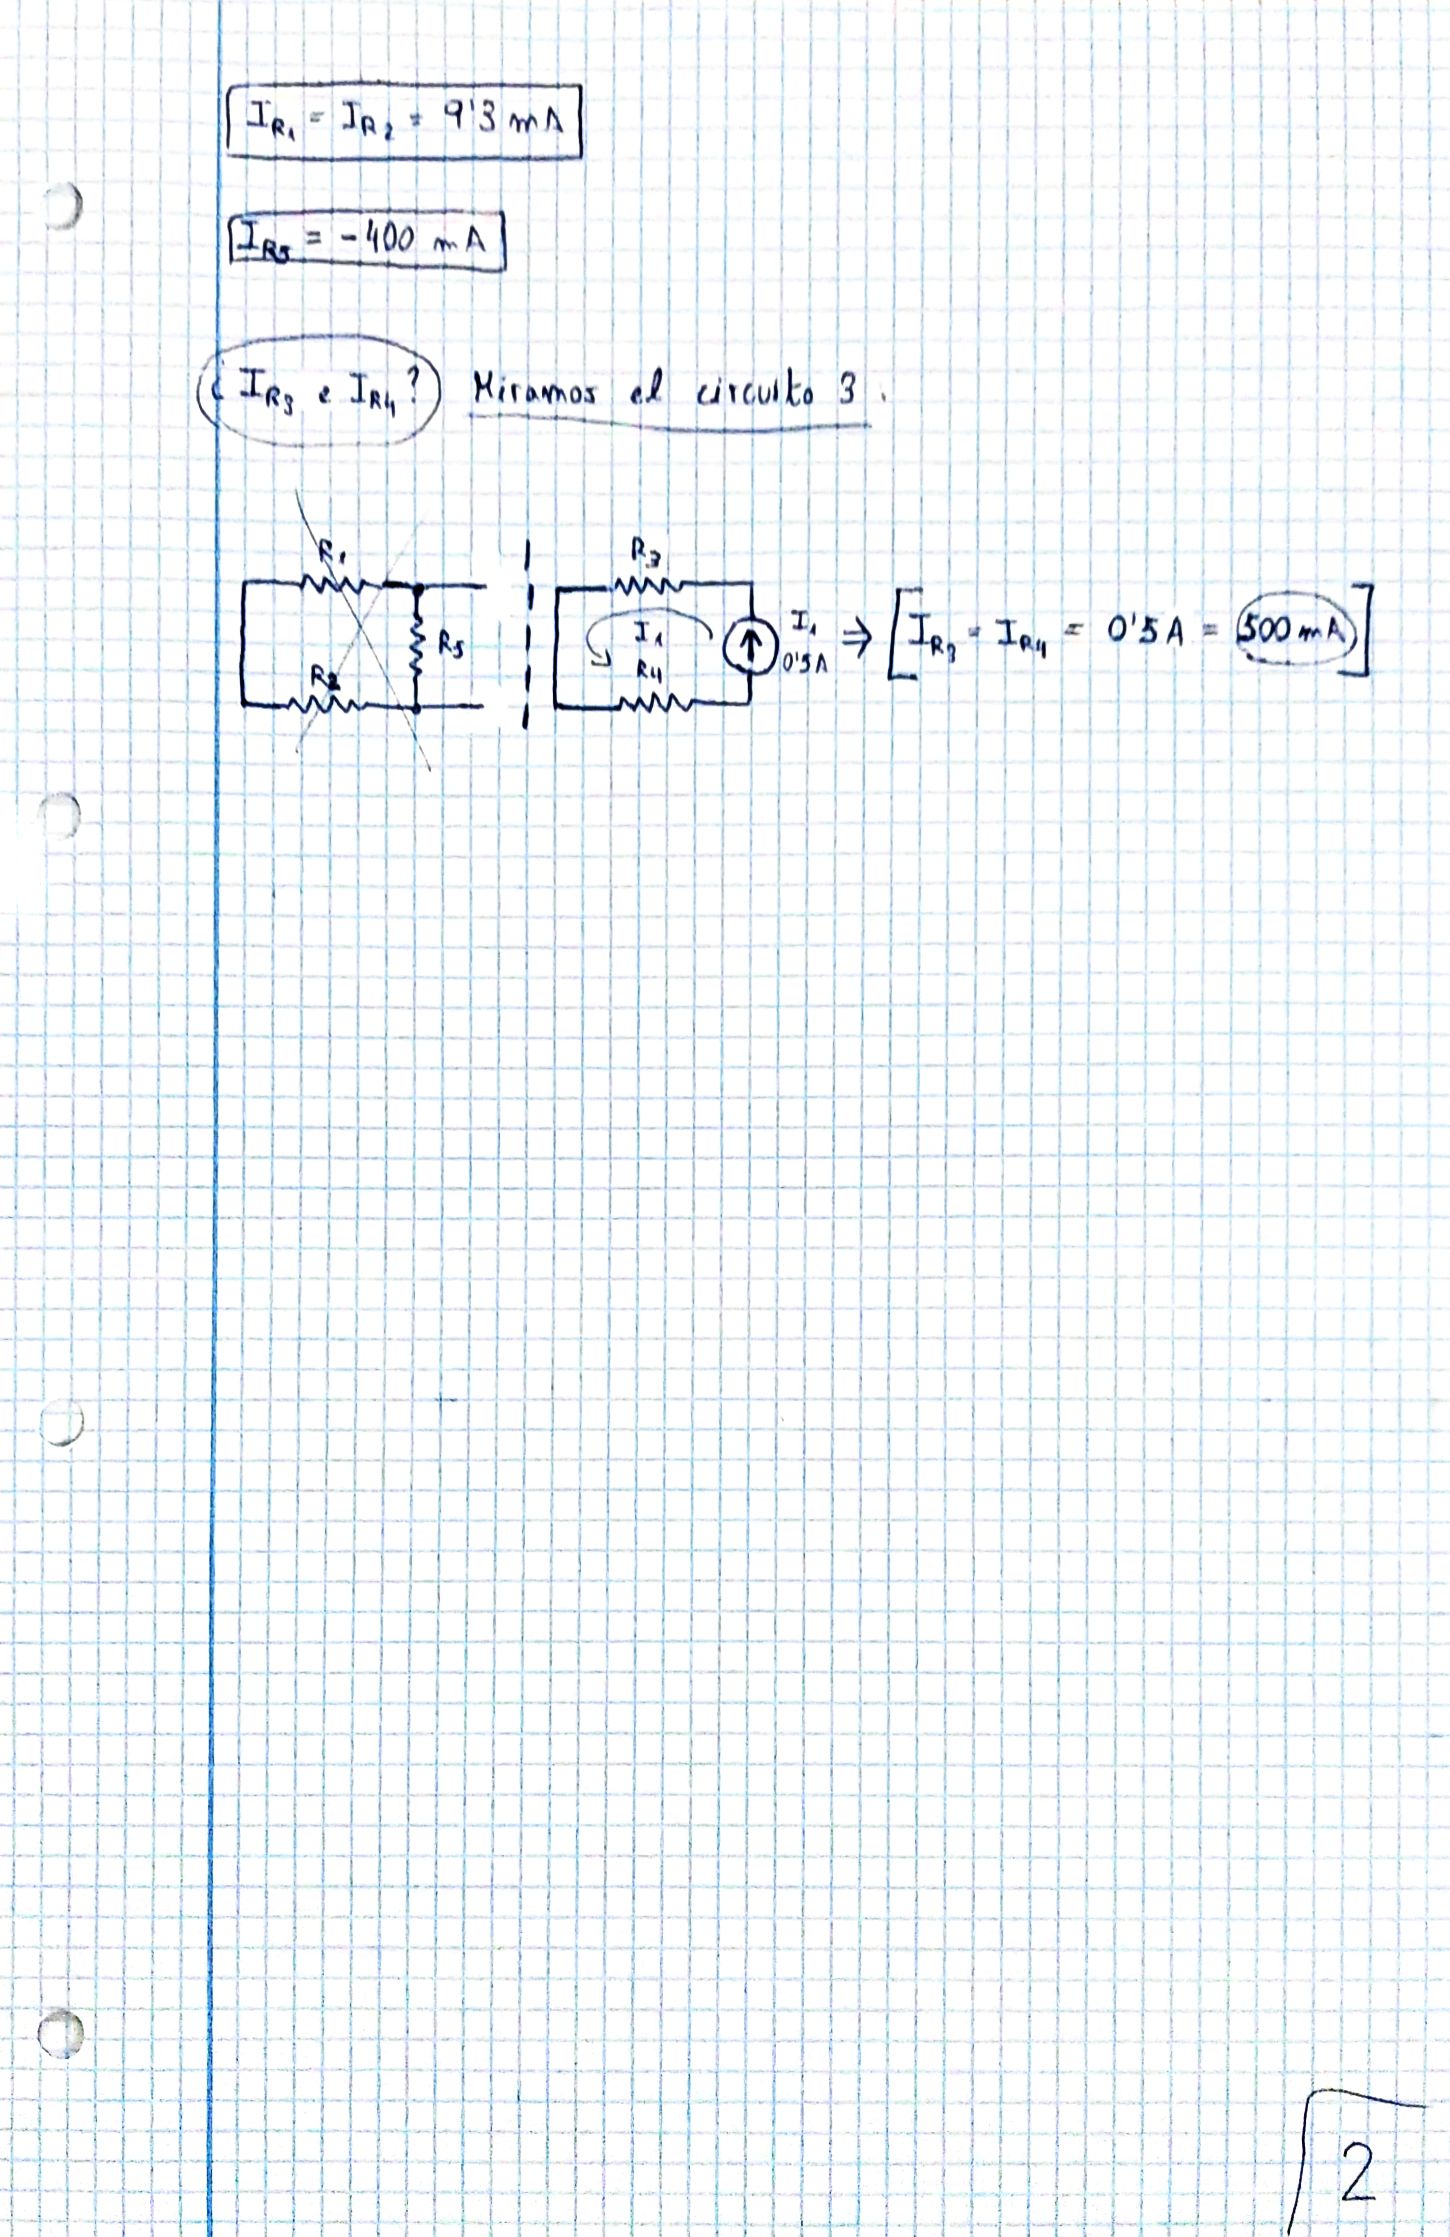 I_R1 = I_R2 = 9'3 mA
I_R5 = -400 mA
¿I_R3 e I_R4? Miramos el circuito 3.
R1
R5
R2
R3
I1
R4
I1
0'5A
⇒ [I_R3 = I_R4 = 0'5A = 500 mA]
2